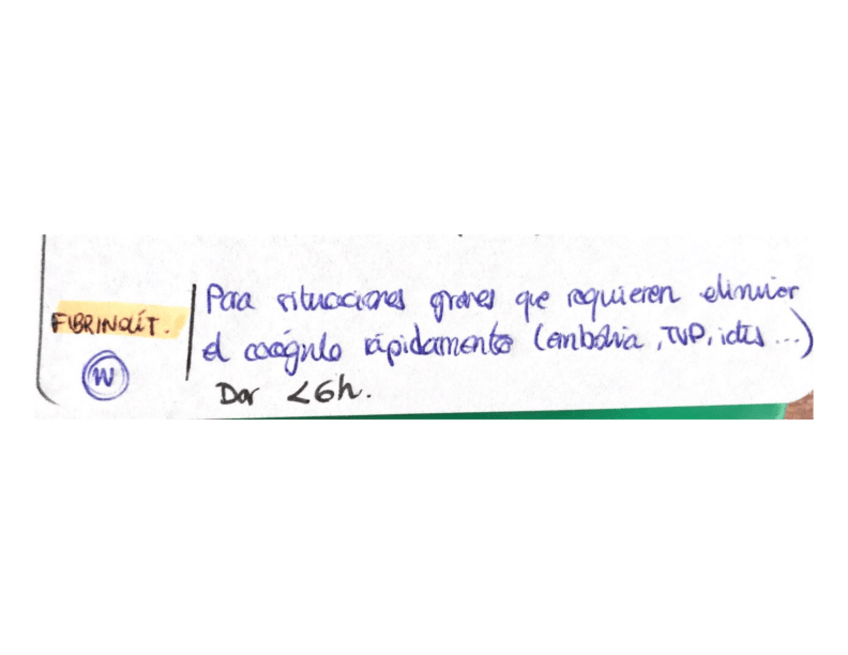 FIBRINOLÍT.
W
Para situaciones graves que requieren eliminar
el coágulo rápidamente (embolia, TVP, ictus...)
Dar <6h.